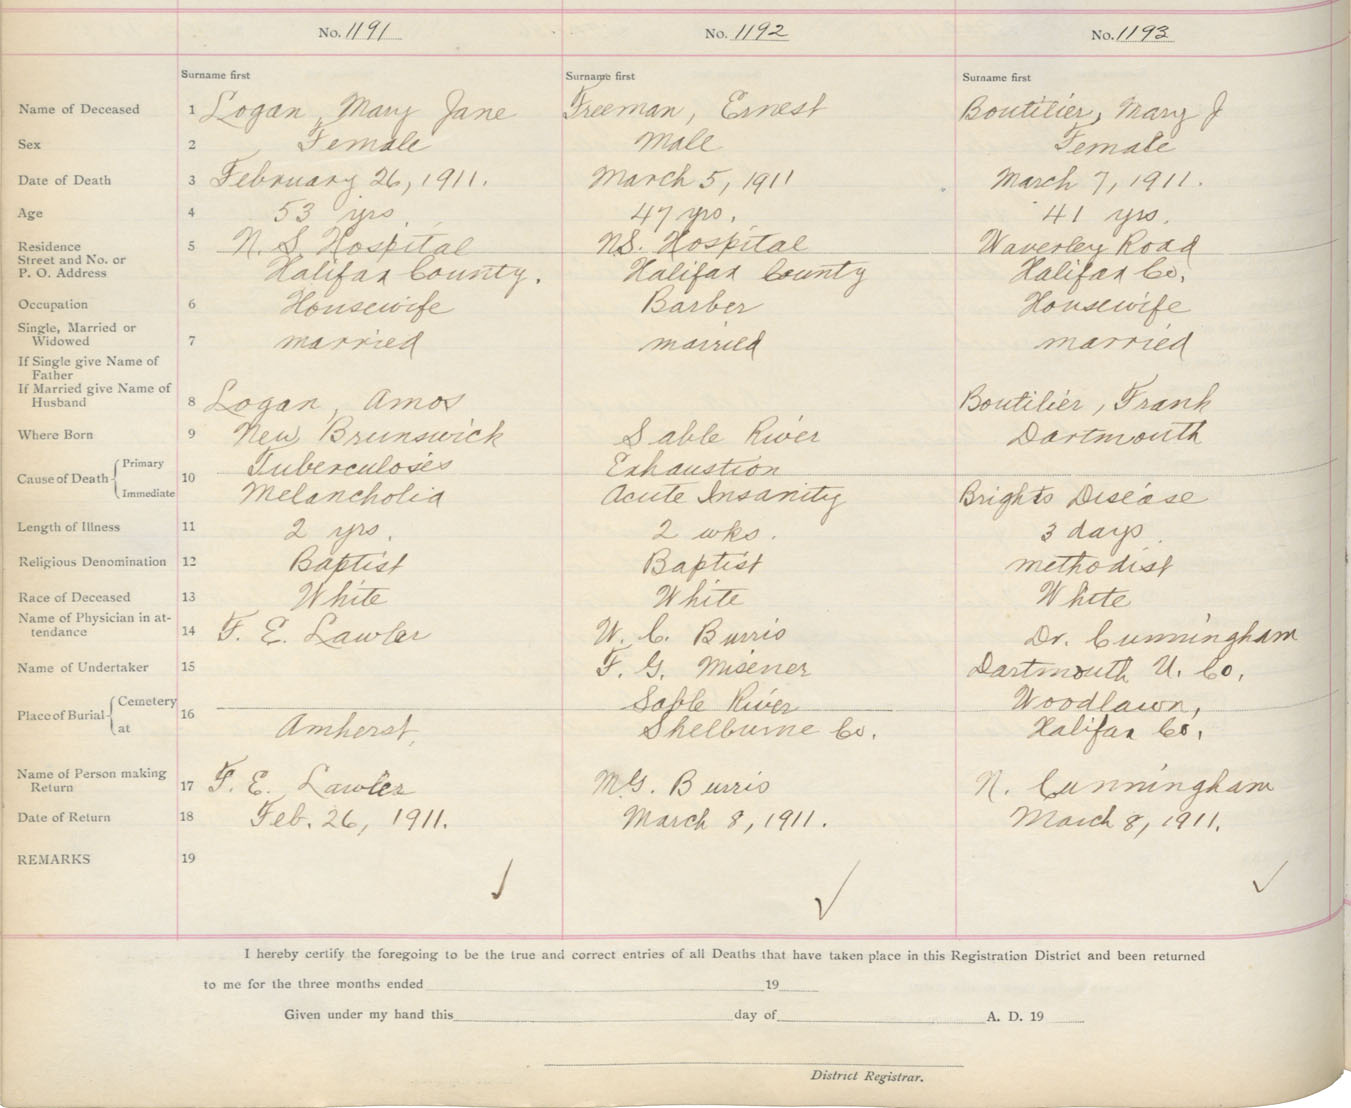 No. 1191 No. 1192 No. 1193
Surname first Surname first Surname first
Name of Deceased 1 Logan, Mary Jane Freeman, Ernest Boutilier, Mary J
Sex 2 Female Male Female
Date of Death 3 February 26, 1911. March 5, 1911 March 7, 1911.
Age 4 53 yrs. 47 yrs. 41 yrs.
Residence 5 N. S. Hospital N.S. Hospital Waverley Road
Street and No. or
P. O. Address Halifax County. Halifax County Halifax Co.
Occupation 6 Housewife Barber Housewife
Single, Married or
Widowed 7 married married married
If Single give Name of
Father
If Married give Name of
Husband 8 Logan, Amos Boutilier, Frank
Where Born 9 New Brunswick Sable River Dartmouth
Cause of Death 10 Primary Tuberculosis Exhaustion
Immediate Melancholia Acute Insanity Brights Disease
Length of Illness 11 2 yrs. 2 wks. 3 days.
Religious Denomination 12 Baptist Baptist methodist
Race of Deceased 13 White White White
Name of Physician in at-
tendance 14 F. E. Lawler W. C. Burris Dr. Cunningham
Name of Undertaker 15 F. G. Misener Dartmouth U. Co.
Place of Burial 16 Cemetery Sable River Woodlawn,
at Amherst, Shelburne Co. Halifax Co.
Name of Person making
Return 17 F. E. Lawler M.G. Burris N. Cunningham
Date of Return 18 Feb. 26, 1911. March 8, 1911. March 8, 1911.
REMARKS 19
I hereby certify the foregoing to be the true and correct entries of all Deaths that have taken place in this Registration District and been returned
to me for the three months ended 19
Given under my hand this day of A. D. 19
District Registrar.